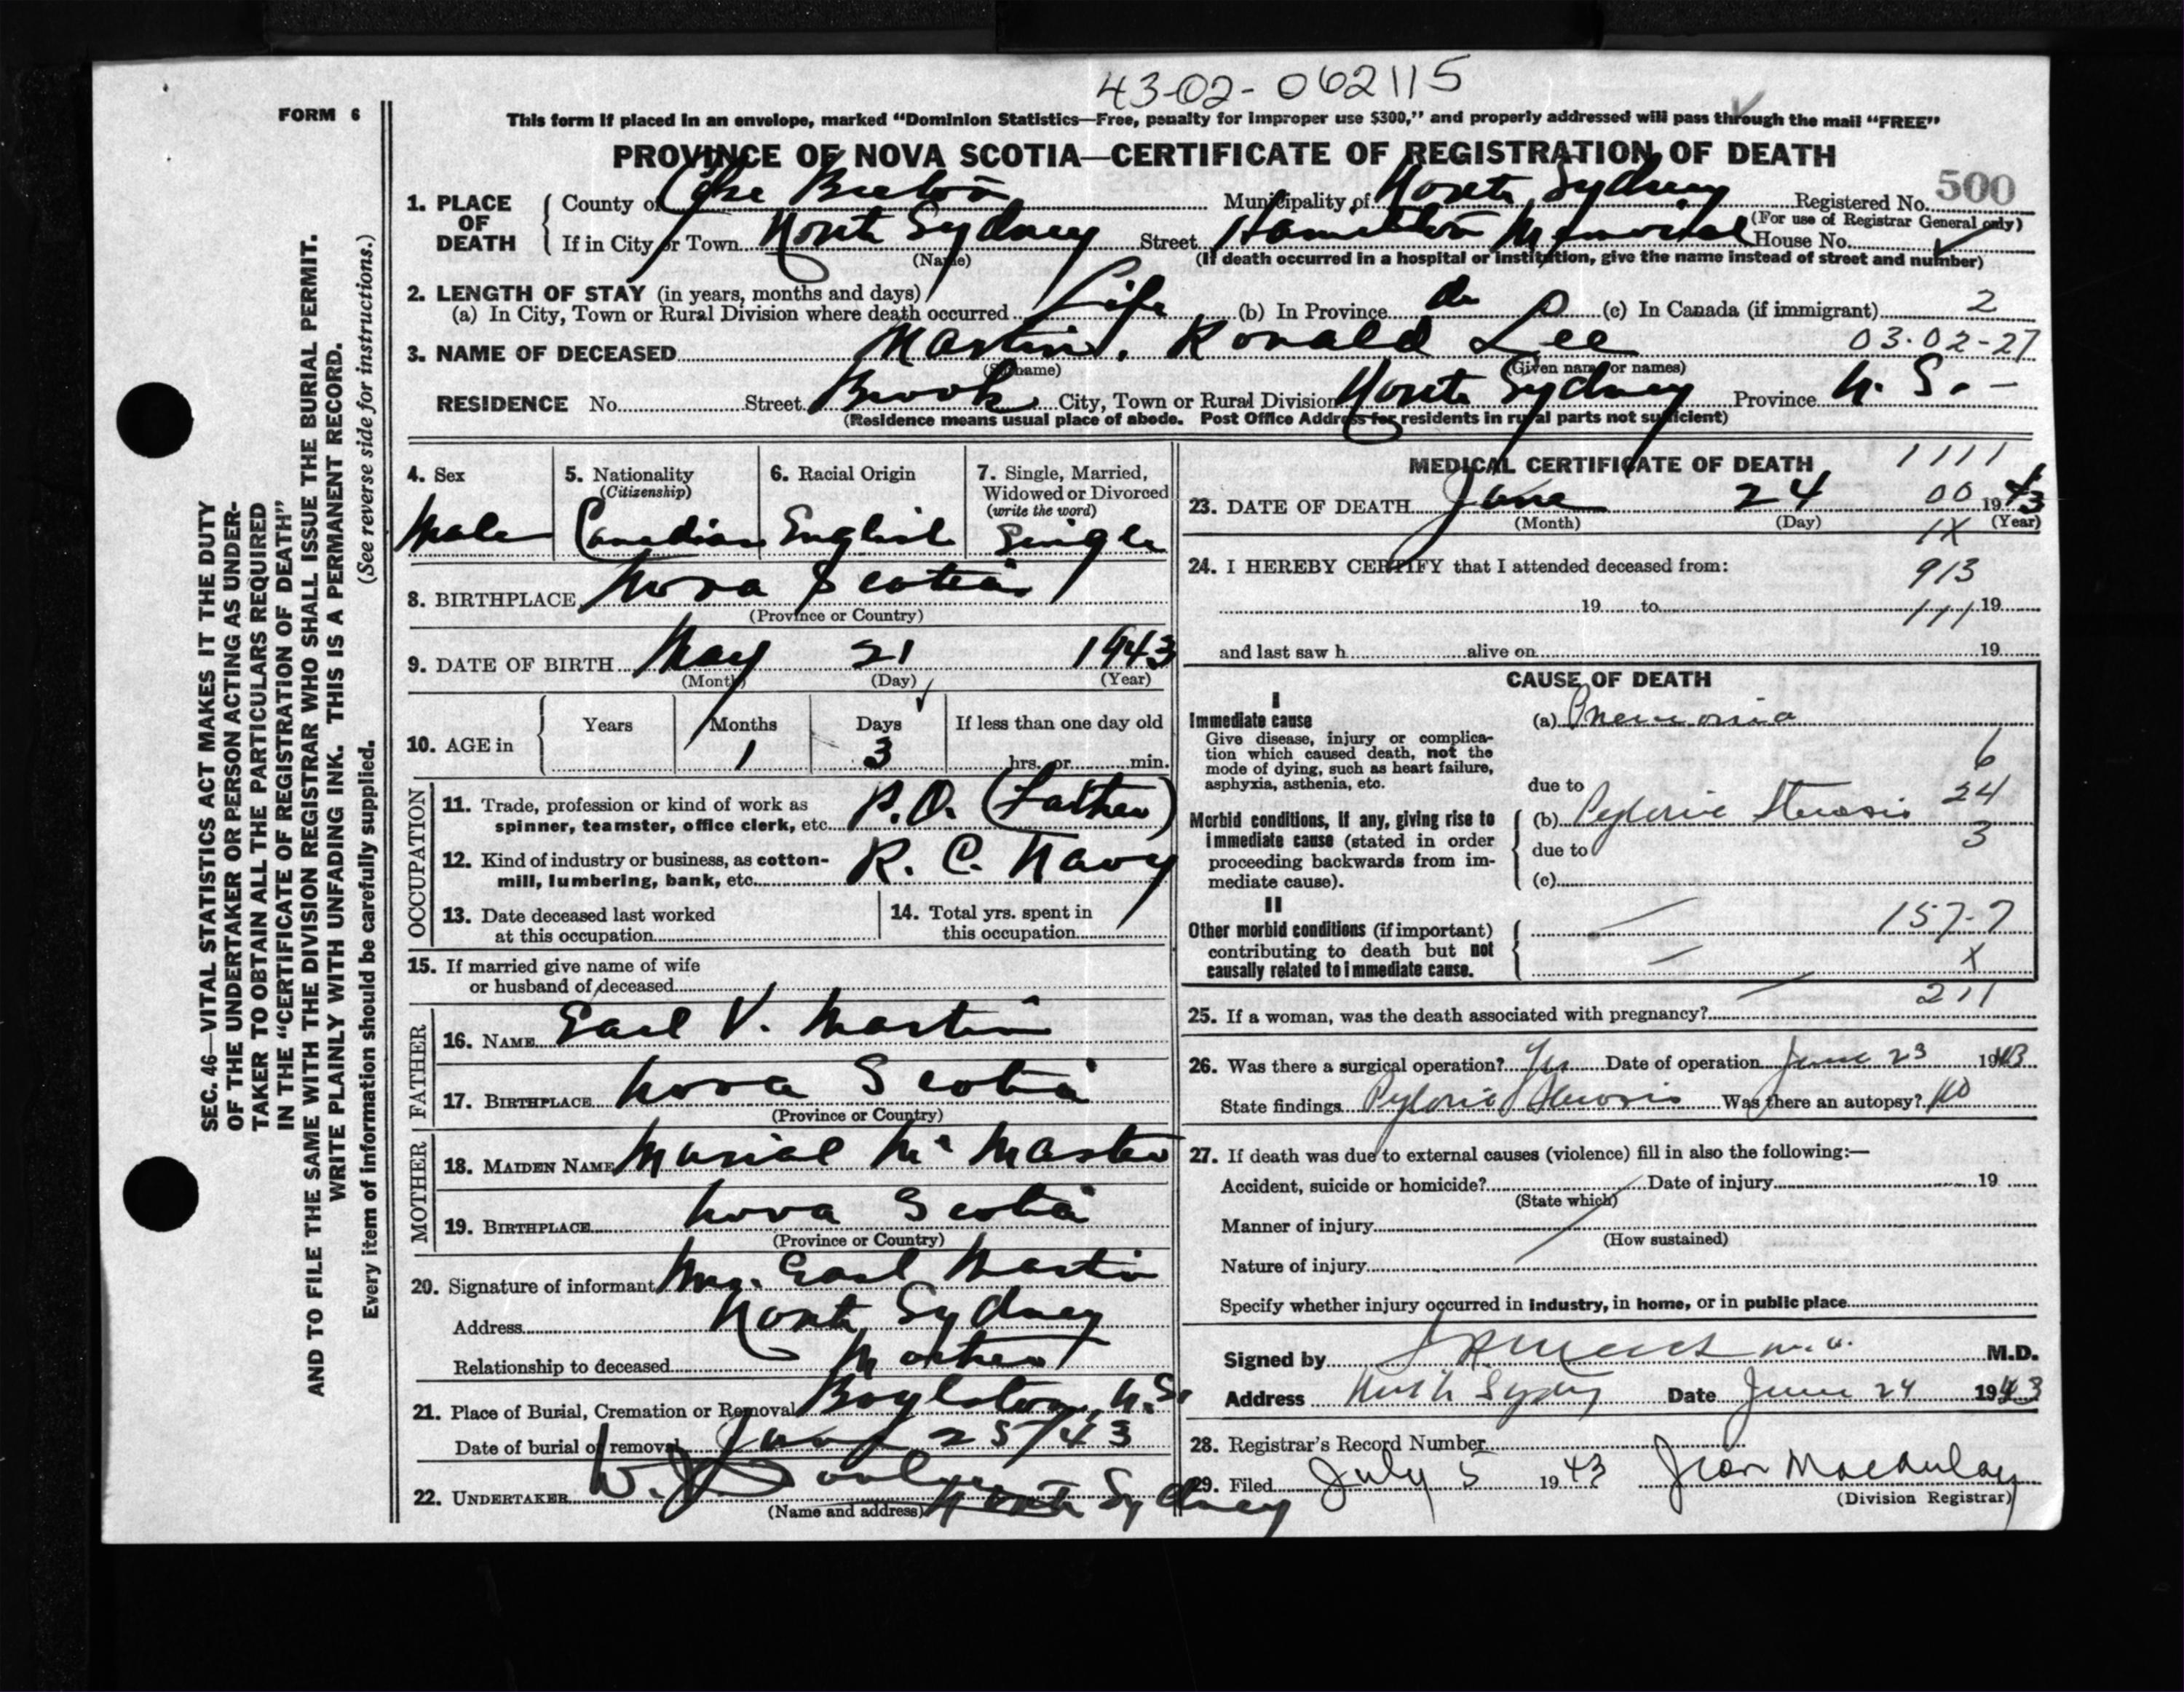 43-02-062115
FORM 6
This form if placed in an envelope, marked “Dominion Statistics—Free, penalty for improper use $300,” and properly addressed will pass through the mail “FREE”
PROVINCE OF NOVA SCOTIA—CERTIFICATE OF REGISTRATION OF DEATH
500
1. PLACE OF DEATH County of Cape Breton Municipality of North Sydney Registered No.
(For use of Registrar General only)
If in City or Town North Sydney Street Hamilton Memorial House No.
(Name) (If death occurred in a hospital or institution, give the name instead of street and number)
2. LENGTH OF STAY (in years, months and days)
(a) In City, Town or Rural Division where death occurred Life (b) In Province do (c) In Canada (if immigrant) 2
3. NAME OF DECEASED Martin, Ronald Lee 03-02-27
(Surname) (Given name or names)
RESIDENCE No. Street Brook City, Town or Rural Division North Sydney Province N. S. -
(Residence means usual place of abode. Post Office Address for residents in rural parts not sufficient)
4. Sex 5. Nationality 6. Racial Origin 7. Single, Married,
(Citizenship) Widowed or Divorced
(write the word)
Male Canadian English Single
8. BIRTHPLACE Nova Scotia
(Province or Country)
9. DATE OF BIRTH May 21 1943
(Month) (Day) (Year)
10. AGE in Years Months Days If less than one day old
1 3 hrs. or min.
OCCUPATION
11. Trade, profession or kind of work as
spinner, teamster, office clerk, etc. P.O. (Father)
12. Kind of industry or business, as cotton-
mill, lumbering, bank, etc. R. C. Navy
13. Date deceased last worked
at this occupation
14. Total yrs. spent in
this occupation
15. If married give name of wife
or husband of deceased
FATHER
16. NAME Earl V. Martin
17. BIRTHPLACE Nova Scotia
(Province or Country)
MOTHER
18. MAIDEN NAME Murial McMaster
19. BIRTHPLACE Nova Scotia
(Province or Country)
20. Signature of informant Mrs. Earl Martin
Address North Sydney
Relationship to deceased Mother
21. Place of Burial, Cremation or Removal Boylston, N.S.
Date of burial or removal June 25/43
22. UNDERTAKER W. J. North Sydney
(Name and address)
MEDICAL CERTIFICATE OF DEATH 1111
23. DATE OF DEATH June 24 00 1943
(Month) (Day) 1X (Year)
24. I HEREBY CERTIFY that I attended deceased from: 913
19 to 111 19
and last saw h alive on 19
CAUSE OF DEATH
I
Immediate cause
Give disease, injury or complica-
tion which caused death, not the
mode of dying, such as heart failure,
asphyxia, asthenia, etc.
(a) Pneumonia
6
due to 24
Morbid conditions, if any, giving rise to
immediate cause (stated in order
proceeding backwards from im-
mediate cause).
(b) Pyloric Stenosis
due to 3
(c)
II
Other morbid conditions (if important)
contributing to death but not
causally related to immediate cause.
157-7
X
211
25. If a woman, was the death associated with pregnancy?
26. Was there a surgical operation? Yes Date of operation June 23 1943
State findings Pyloric Stenosis Was there an autopsy? no
27. If death was due to external causes (violence) fill in also the following:—
Accident, suicide or homicide? Date of injury 19
(State which)
Manner of injury
(How sustained)
Nature of injury
Specify whether injury occurred in industry, in home, or in public place
Signed by M.D.
Address North Sydney Date June 24 1943
28. Registrar's Record Number
29. Filed July 5 1943 Jean MacAulay
(Division Registrar)
SEC. 46—VITAL STATISTICS ACT MAKES IT THE DUTY
OF THE UNDERTAKER OR PERSON ACTING AS UNDER-
TAKER TO OBTAIN ALL THE PARTICULARS REQUIRED
IN THE “CERTIFICATE OF REGISTRATION OF DEATH”
AND TO FILE THE SAME WITH THE DIVISION REGISTRAR WHO SHALL ISSUE THE BURIAL PERMIT.
WRITE PLAINLY WITH UNFADING INK. THIS IS A PERMANENT RECORD.
Every item of information should be carefully supplied. (See reverse side for instructions.)